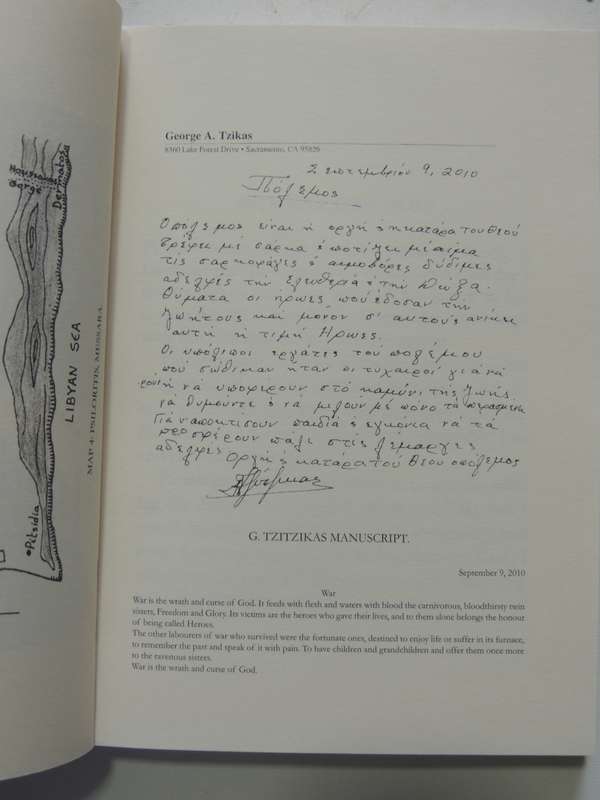 Houstouliana
Gorge
Dermatos
LIBYAN SEA
Pitsidia
MAP 4: PSILORITIS, MESSARA
George A. Tzikas
8360 Lake Forest Drive • Sacramento, CA 95826
Σεπτεμβρίου 9, 2010
Πόλεμος
Ο πόλεμος είναι ή οργή & η κατάρα του Θεού
Τρέφει μέ σάρκα & ποτίζει μέ αίμα
τίς σαρκοφάγες & αιμοβόρες δύδιμες
αδελφές τήν ελευθερία & τήν δόξα.
Θύματα οι ήρωες πού έδοσαν τήν
ζωή τους καί μόνον σ' αυτούς ανίκει
αυτή ή τιμή Ήρωες.
Οι υπόλιποι εργάτες του πολέμου
πού σώθικαν ήταν οι τυχαιροί γιά νά
ή νά υποφέρουν στό καμίνι της ζωής.
νά θυμούντε & νά μιλούν μέ πόνο τά περασμένα
Γιά ν αποκτίσουν παιδιά & εγκόνια νά τά
προσφέρουν πάλι στίς λέμαργες
αδελφές Οργή & κατάρα τού Θεου ο πόλεμος
G. TZITZIKAS MANUSCRIPT.
September 9, 2010
War
War is the wrath and curse of God. It feeds with flesh and waters with blood the carnivorous, bloodthirsty twin
sisters, Freedom and Glory. Its victims are the heroes who gave their lives, and to them alone belongs the honour
of being called Heroes.
The other labourers of war who survived were the fortunate ones, destined to enjoy life or suffer in its furnace,
to remember the past and speak of it with pain. To have children and grandchildren and offer them once more
to the ravenous sisters.
War is the wrath and curse of God.